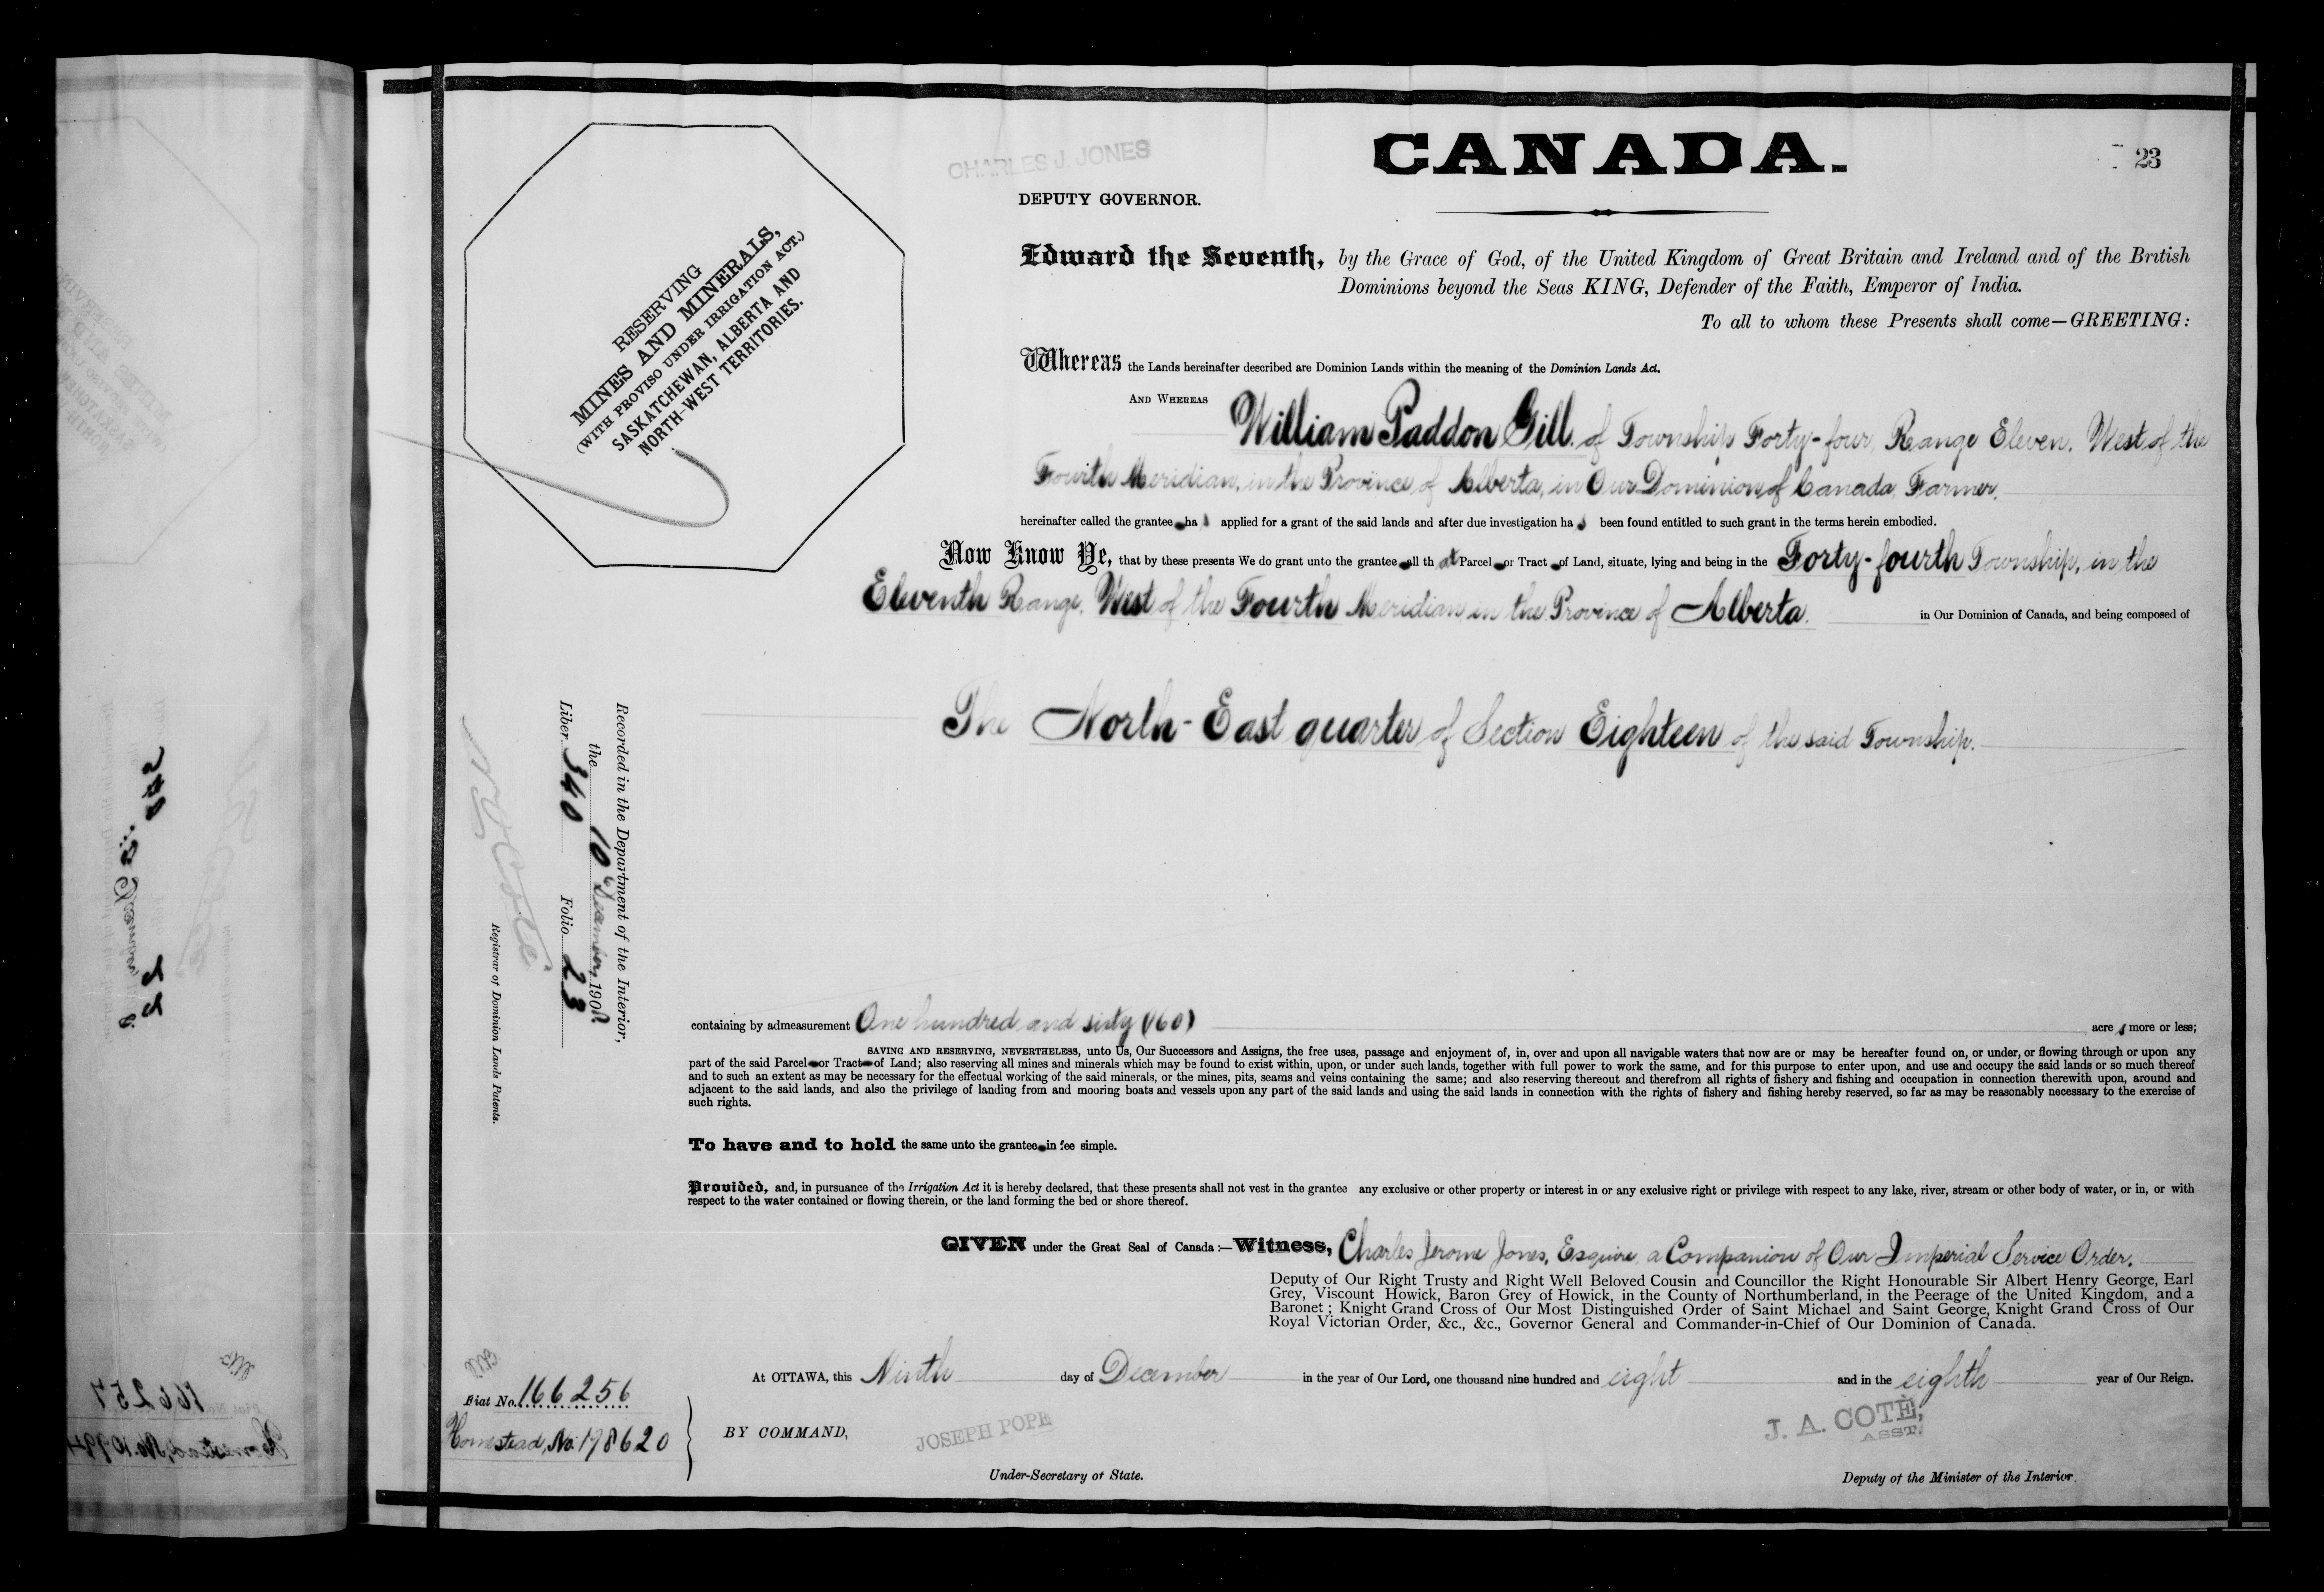 CANADA.
23
CHARLES J. JONES
DEPUTY GOVERNOR.
RESERVING
MINES AND MINERALS,
(WITH PROVISO UNDER IRRIGATION ACT.)
SASKATCHEWAN, ALBERTA AND
NORTH-WEST TERRITORIES.
Edward the Seventh, by the Grace of God, of the United Kingdom of Great Britain and Ireland and of the British
Dominions beyond the Seas KING, Defender of the Faith, Emperor of India.
To all to whom these Presents shall come—GREETING:
Whereas the Lands hereinafter described are Dominion Lands within the meaning of the Dominion Lands Act.
AND WHEREAS William Paddon Gill, of Township Forty-four, Range Eleven, West of the
Fourth Meridian, in the Province of Alberta, in Our Dominion of Canada, Farmer,
hereinafter called the grantee has applied for a grant of the said lands and after due investigation has been found entitled to such grant in the terms herein embodied.
Now Know Ye, that by these presents We do grant unto the grantee all that Parcel or Tract of Land, situate, lying and being in the Forty-fourth Township, in the
Eleventh Range, West of the Fourth Meridian, in the Province of Alberta, in Our Dominion of Canada, and being composed of
The North-East quarter of Section Eighteen of the said Township.
Recorded in the Department of the Interior,
the 10 December, 1908
Liber 340 Folio 23
N O Coté
Registrar of Dominion Lands Patents.
containing by admeasurement One hundred and sixty (160) acres more or less;
SAVING AND RESERVING, NEVERTHELESS, unto Us, Our Successors and Assigns, the free uses, passage and enjoyment of, in, over and upon all navigable waters that now are or may be hereafter found on, or under, or flowing through or upon any
part of the said Parcel or Tract of Land; also reserving all mines and minerals which may be found to exist within, upon, or under such lands, together with full power to work the same, and for this purpose to enter upon, and use and occupy the said lands or so much thereof
and to such an extent as may be necessary for the effectual working of the said minerals, or the mines, pits, seams and veins containing the same; and also reserving thereout and therefrom all rights of fishery and fishing and occupation in connection therewith upon, around and
adjacent to the said lands, and also the privilege of landing from and mooring boats and vessels upon any part of the said lands and using the said lands in connection with the rights of fishery and fishing hereby reserved, so far as may be reasonably necessary to the exercise of
such rights.
To have and to hold the same unto the grantee in fee simple.
Provided, and, in pursuance of the Irrigation Act it is hereby declared, that these presents shall not vest in the grantee any exclusive or other property or interest in or any exclusive right or privilege with respect to any lake, river, stream or other body of water, or in, or with
respect to the water contained or flowing therein, or the land forming the bed or shore thereof.
GIVEN under the Great Seal of Canada :—Witness, Charles Jerome Jones, Esquire, a Companion of Our Imperial Service Order.
Deputy of Our Right Trusty and Right Well Beloved Cousin and Councillor the Right Honourable Sir Albert Henry George, Earl
Grey, Viscount Howick, Baron Grey of Howick, in the County of Northumberland, in the Peerage of the United Kingdom, and a
Baronet ; Knight Grand Cross of Our Most Distinguished Order of Saint Michael and Saint George, Knight Grand Cross of Our
Royal Victorian Order, &c., &c., Governor General and Commander-in-Chief of Our Dominion of Canada.
At OTTAWA, this Ninth day of December in the year of Our Lord, one thousand nine hundred and eight and in the eighth year of Our Reign.
Fiat No. 166256
Homestead, No. 198620
BY COMMAND,
JOSEPH POPE
Under-Secretary of State.
J. A. COTÉ,
ASST.
Deputy of the Minister of the Interior.